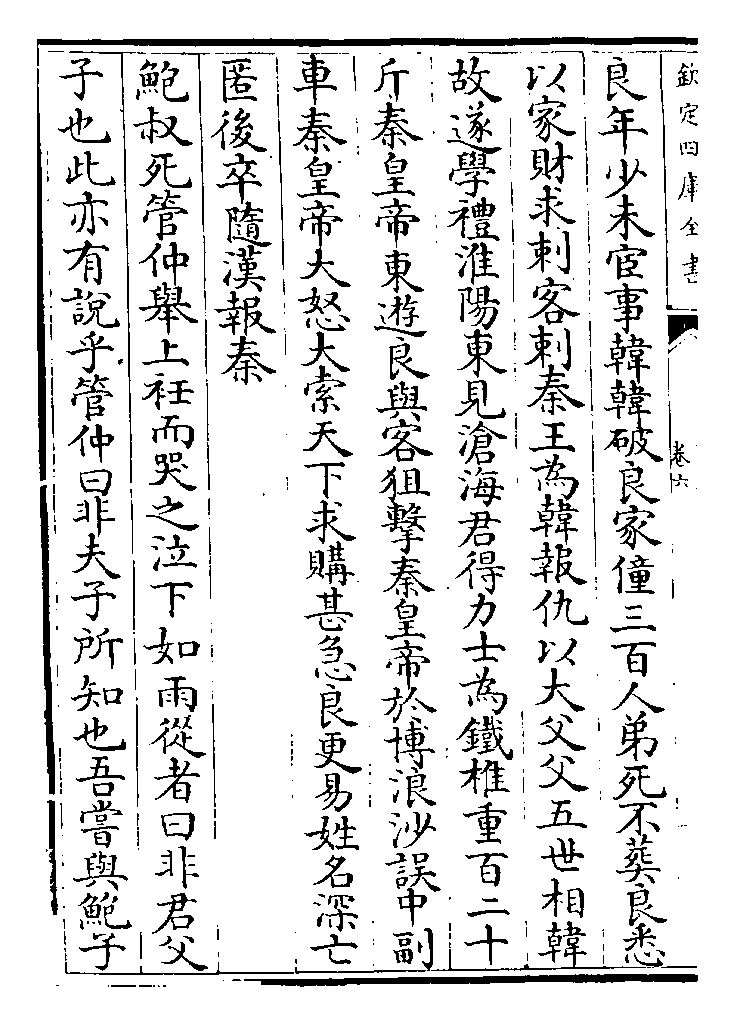 欽定四庫全書
卷六
良年少未宦事韓韓破良家僮三百人弟死不葬良悉
以家財求刺客刺秦王為韓報仇以大父父五世相韓
故遂學禮淮陽東見滄海君得力士為鐵椎重百二十
斤秦皇帝東遊良與客狙擊秦皇帝於博浪沙誤中副
車秦皇帝大怒大索天下求購甚急良更易姓名深亡
匿後卒隨漢報秦
鮑叔死管仲舉上衽而哭之泣下如雨從者曰非君父
子也此亦有說乎管仲曰非夫子所知也吾嘗與鮑子